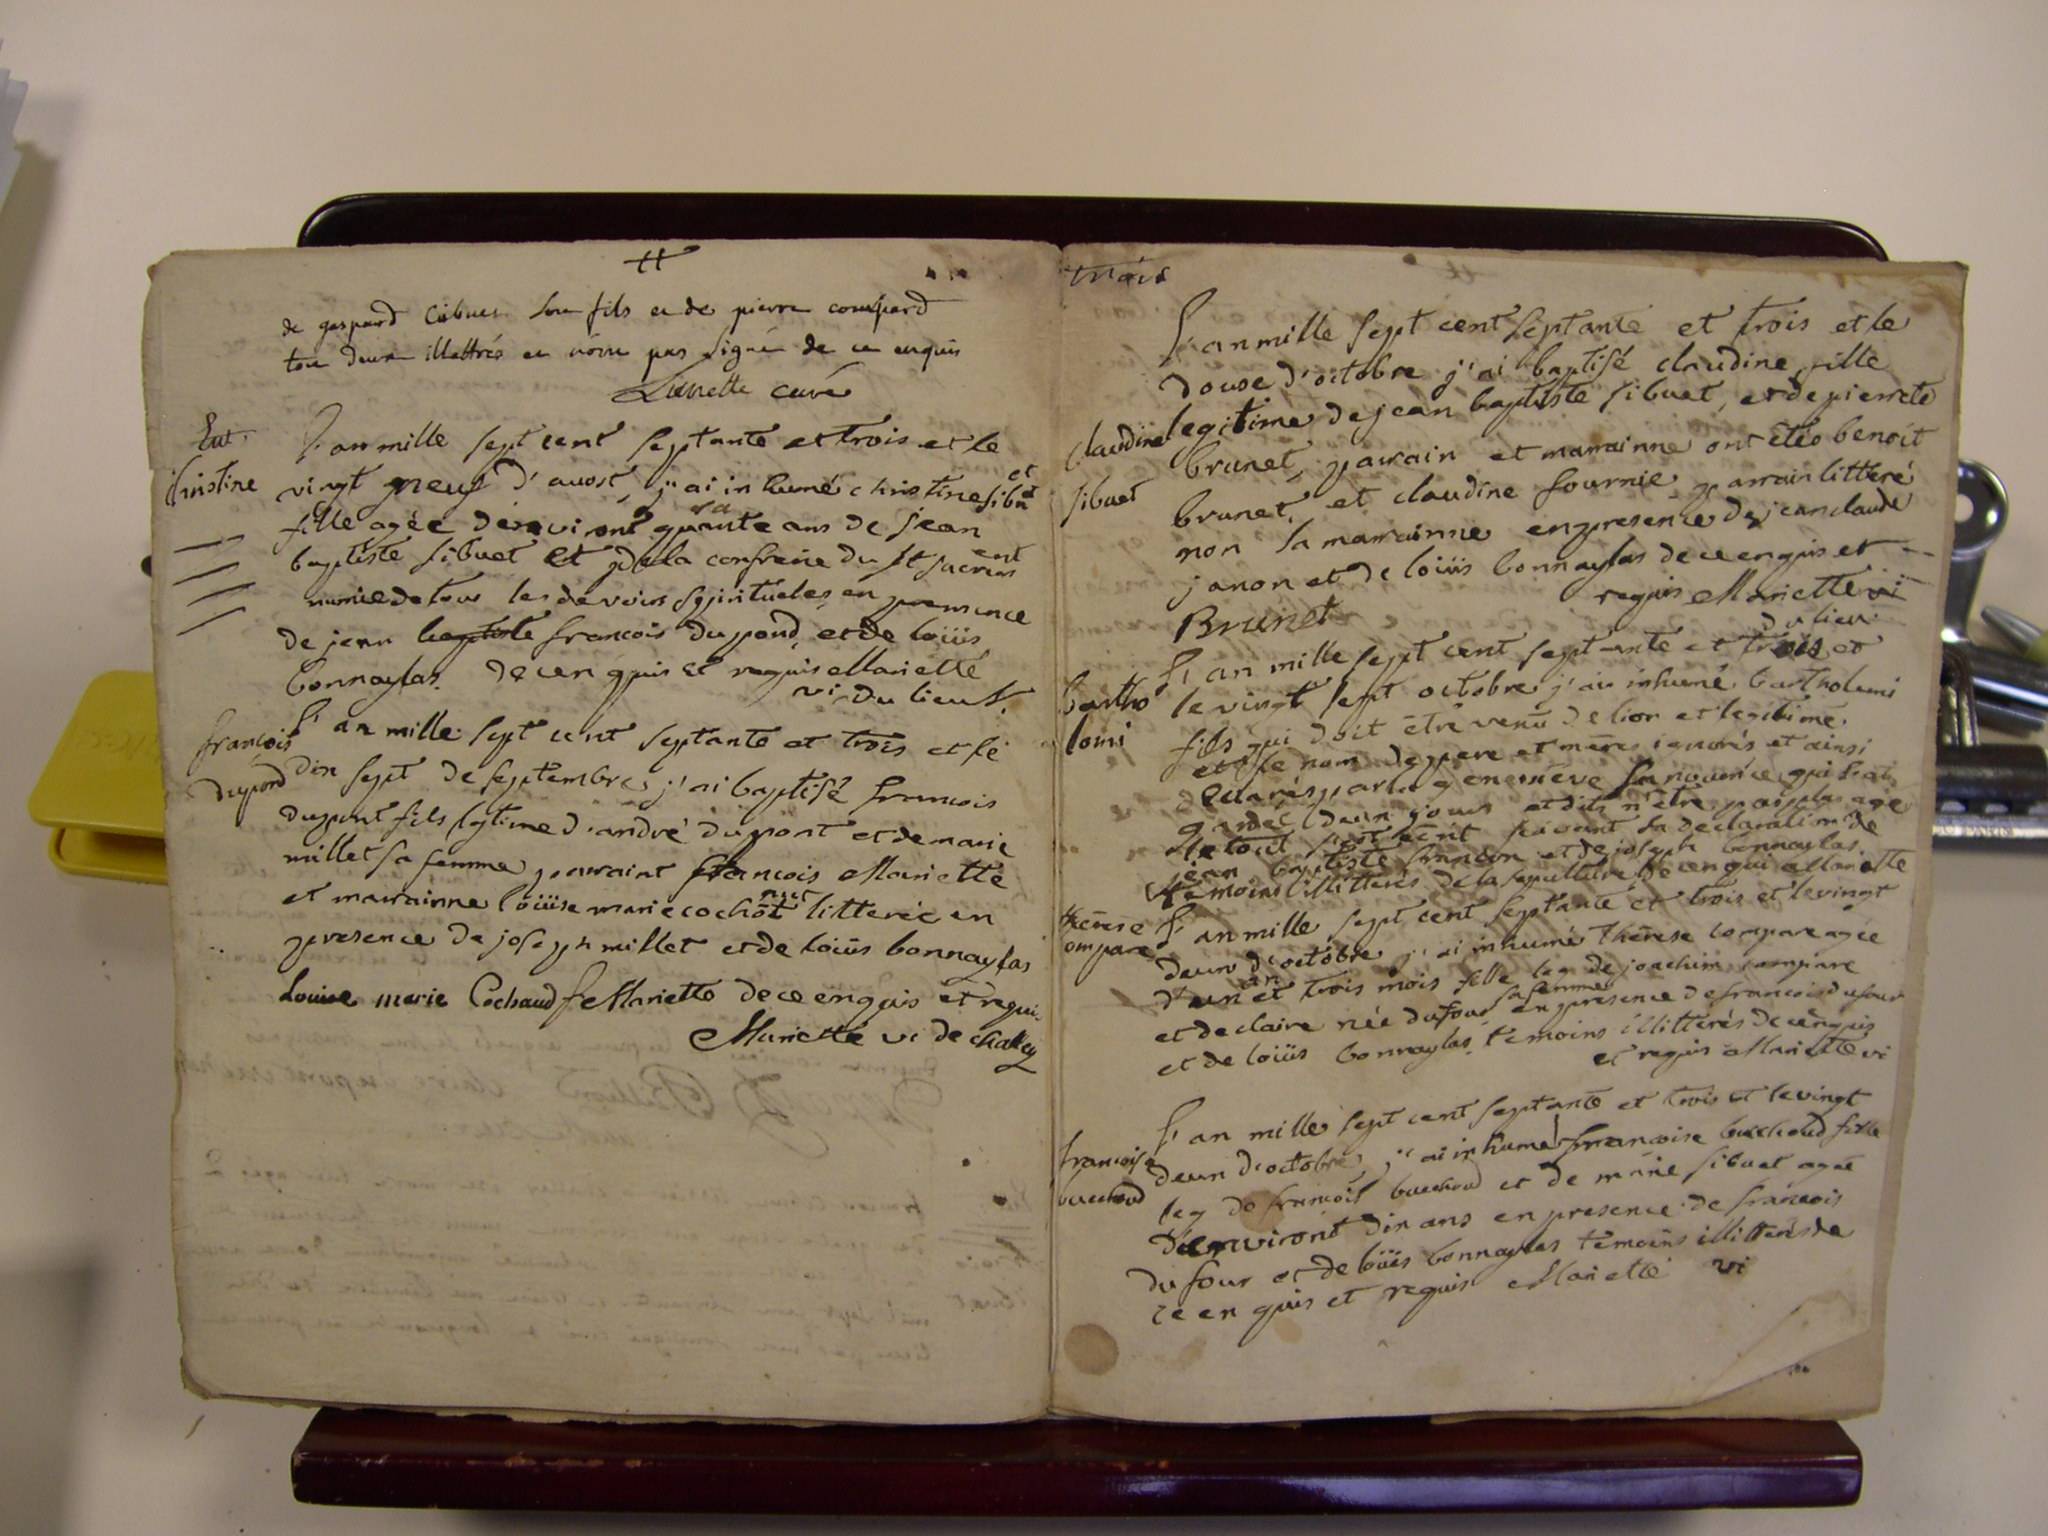 de gaspard Cibuet son fils et de pierre compard
tou deux illettrés et n'ont pas signé de ce enquis
curé
Ent.
Christine
L'an mille sept cent septante et trois et le
vingt neuf d'auost j'ai inhumé christine sibuet
fille agée d'environt quarante ans de jean
baptiste sibuet et de la confreirie du st sacrement
munie de tous les devoirs spirituéles en presence
de jean baptiste francois dupond et de loüis
bonnaylas. de ce enquis et requis Mariette
vi. du lieu
françois
dupond
L'an mille sept cent septante et trois et le
dix sept de septembre j'ai baptisé francois
dupont fils legtime d'andré dupont et de marie
millet sa femme parraint francois Mariette
et marrainne loüise marie cochot litterée en
presence de joseph millet et de loüis bonnaylas
Louise marie Cochaud f Mariette de ce enquis et requi.
Mariette vi de challey
trois
L'an mille sept cent septante et trois et le
douse d'octobre j'ai baptisé claudine fille
claudine
sibuet
legitime de jean baptiste sibuet, et de pierrete
brunet, parain et marrainne ont étés benoit
brunet, et claudine fournie parrain litteré
non la marrainne en presence de jean claude
janon et de loüis bonnaylas de ce enquis et
requis Mariette vi
Brunet
du lieu
bartho
lomi
L'an mille sept cent septante et trois et
le vingt sept octobre j'ai inhumé bartholemi
fils qui doit étré venu de lion et legitime
et le nom de pere et mére ignorés et ainsi
declarés par la genevieve sa nourice qui l'at
gardé deux jours et dits n'étre pas plus agé
le tout suivant la declaration de
jean baptiste francon et de joseph bonnaylas
témoins illitterés de la sepulture de ce enqui Mariette
thérese
compare
L'an mille sept cent septante et trois et le vingt
deux d'octobre j'ai inhumé thérese compare agée
d'un an et trois mois fille leg de joachim compare
et de claire née dufour sa femme en presence de francois dufour
et de loüis bonnaylas témoins illitterés de ce enquis
et requis Mariette vi
francoise
buechoud
L'an mille sept cent septante et trois et le vingt
deux d'octobre j'ai inhumé francoise buechoud fille
leg de francois buechoud et de marie sibuet agée
d'environt dix ans en presence de francois
dufour et de loüis bonnaylas témoins illitterés de
ce enquis et requis Mariette vi